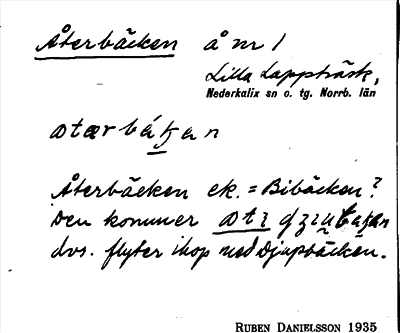 Återbäcken å nr 1
Lilla Lappträsk,
Nederkalix sn o. tg. Norrb. län
Återbäcken ek. = Bibäcken?
Den kommer
dvs. flyter ihop med Djupbäcken.
RUBEN DANIELSSON 1935